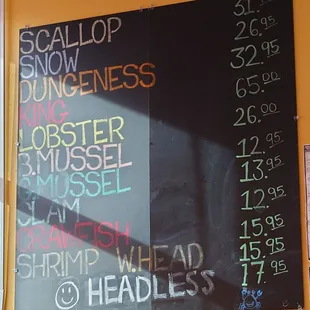 SCALLOP 31.
SNOW 26.95
DUNGENESS 32.95
KING 65.00
LOBSTER 26.00
B.MUSSEL 12.95
MUSSEL 13.95
CLAM 12.95
CRAWFISH 15.95
SHRIMP W.HEAD 15.95
HEADLESS 17.95